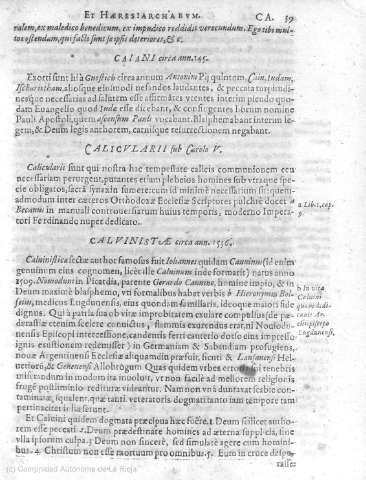 ET HÆRESIARCHARVM. CA. 39
ralem, ex maledico benedicum, ex impudico reddidis verecundum. Ego tibi mini-
mos ostendam, qui facti sunt se ipsis deteriores, & c.
CAIANI circa ann. 145.
Exorti sunt hi à Gnosticis circa annum Antonini Pij quintum, Cain, Iudam,
aliosque eiusmodi nefandos laudantes, & peccata turpidi-
nesque necessarias ad salutem esse affirmãtes vtentes interim pseudo quo-
dam Euangelio quod Iudæ esse dicebant, & confingentes Librum nomine
Pauli Apostoli, quem ascensum Pauli vocabant. Blasphemabant interim le-
gem, & Deum legis anthorem, carnisque resurrectionem negabant.
CALICVLARII sub Carolo V.
Calicularii sunt qui nostra hac tempestate calicis communionem ceu
necessariam perurgent, putantes
cie obligatos, sacra
admodum inter cæteros Orthodoxæ Ecclesiæ Scriptores pulchrè docet a
Becanus in manuali controuersiarum huius temporis, moderno Impera-
tori Ferdinando nuper dedicato.
a Lib. 1, cap.
CALVINISTÆ circa ann. 1536.
Caluinisticæ sectæ author famosus fuit Iohannes quidam Cauuinus (id enim
genuinum eius cognomen, licèt ille Caluinum inde formarit) natus anno
1509. Nouioduni in Picardia, parente Gerardo Cauuino, homine impio, & in
Deum valdè blasphemo, vti formalibus habet verbis b Hieronymus Bol-
secius, medicus Lugdunensis, eius quondam familiaris, ideoque maiori fide
dignus. Qui à patria sua ob vitæ improbitatem exulare compulsus (de pæ-
derastiæ etenim scelere conuictus, flammis exurendus erat, ni Nouiodu-
nensis Episcopi intercessione, candentis ferri cauterio dorso eius impresso
ignis exustionem redemisset) in Germaniam & Sabaudiam profugiens,
nouæ Argentinensi Ecclesiæ aliquamdiu præfuit, sicuti & Lausanensi Hel-
uetiorũ, & Geneuensi Allobrogum Quas quidem vrbes erroris sui tenebris
miserandum in modum ita inuoluit, vt non facilè ad meliorem religionis
frugẽ postliminio rediturę videantur. Nam non vná duntaxat scabie con-
taminatus,
pertinaciter is laudarit.
b In vita
Caluini
Lugdunensi.
Et Caluini quidem dogmata præcipua hæc fuêre. 1 Deum scilicet autho-
rem esse peccati 2. Deum prædestinare homines ad æterna supplicia, sine
vlla ipsorum culpa. 3 Deum non sincerè, sed simulatè agere cum homini-
bus. 4. Christum non esse mortuum pro omnibus. 5. Eum in cruce despe-
rasse:
(c) Comunidad Autónoma de La Rioja